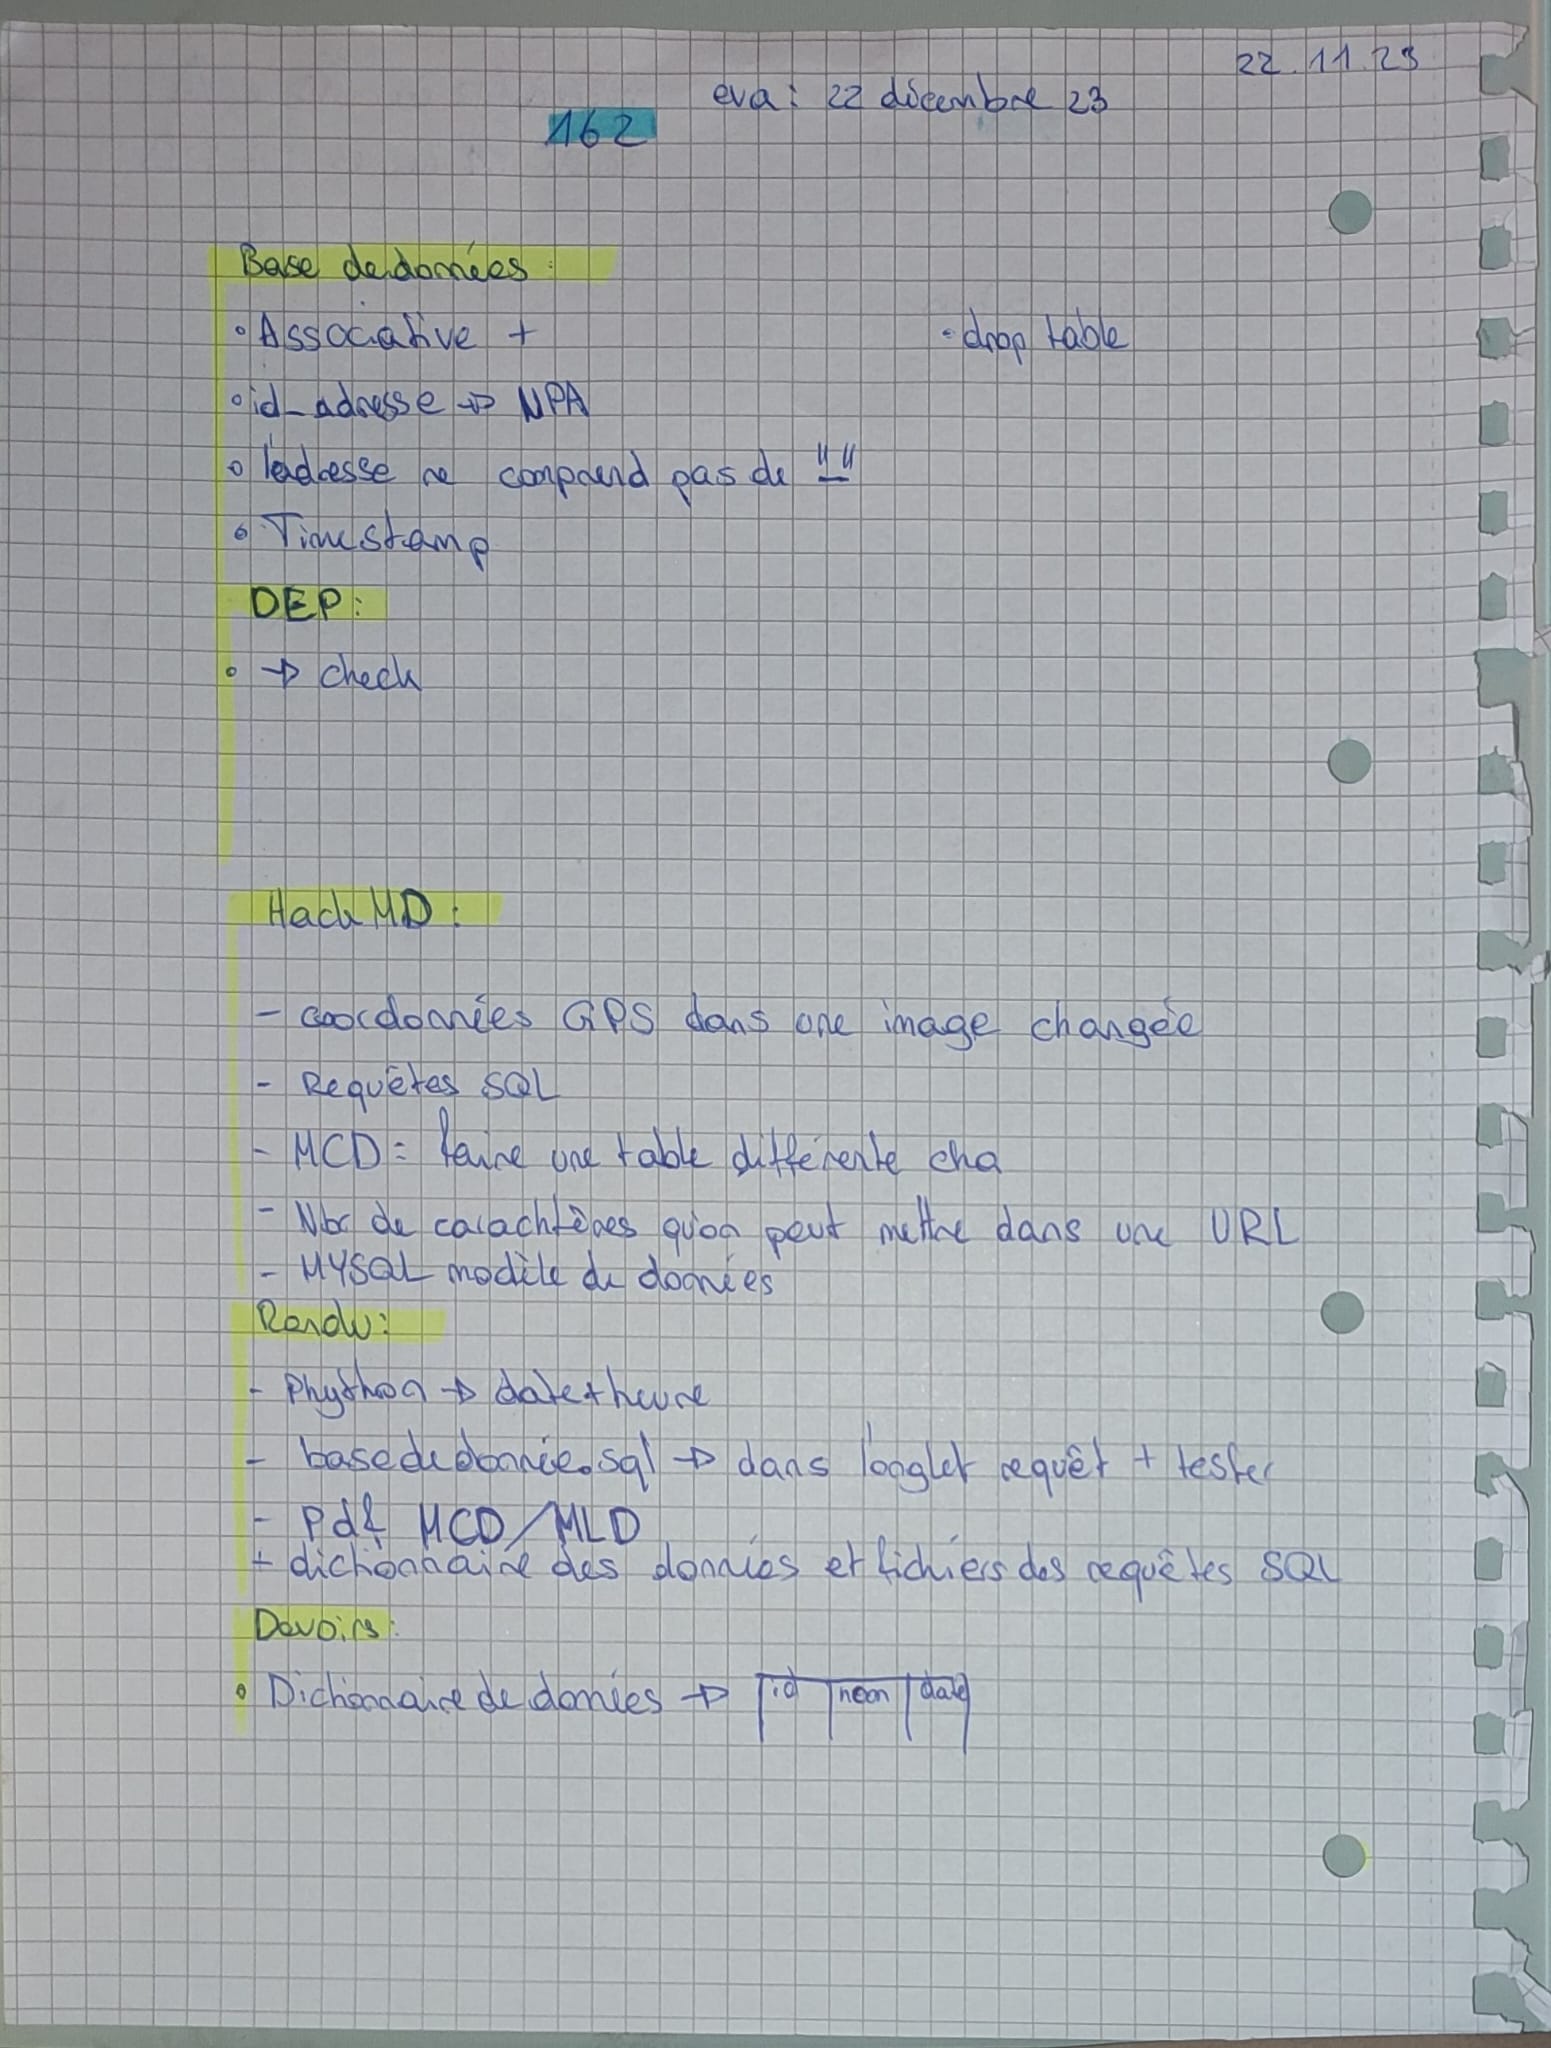 22.11.23
eva: 22 décembre 23
162
Base de données :
• Associative +
- drop table
• id_adresse → NPA
• l'adresse ne comprend pas de "_"
• Timestamp
DEP:
• → check
Hack MD :
- coordonnées GPS dans une image changée
- Requêtes SQL
- MCD = faire une table différente cha
- Nbr de carachtères qu'on peut mettre dans une URL
- MYSQL modèle de données
Rendu:
- Phython → date+heure
- basededonnée.sql → dans l'onglet requêt + tester
- Pdf MCD/MLD
+ dichionnaire des données et fichiers des requêtes SQL
Devoirs:
• Dichionnaire de donnies → id nom date